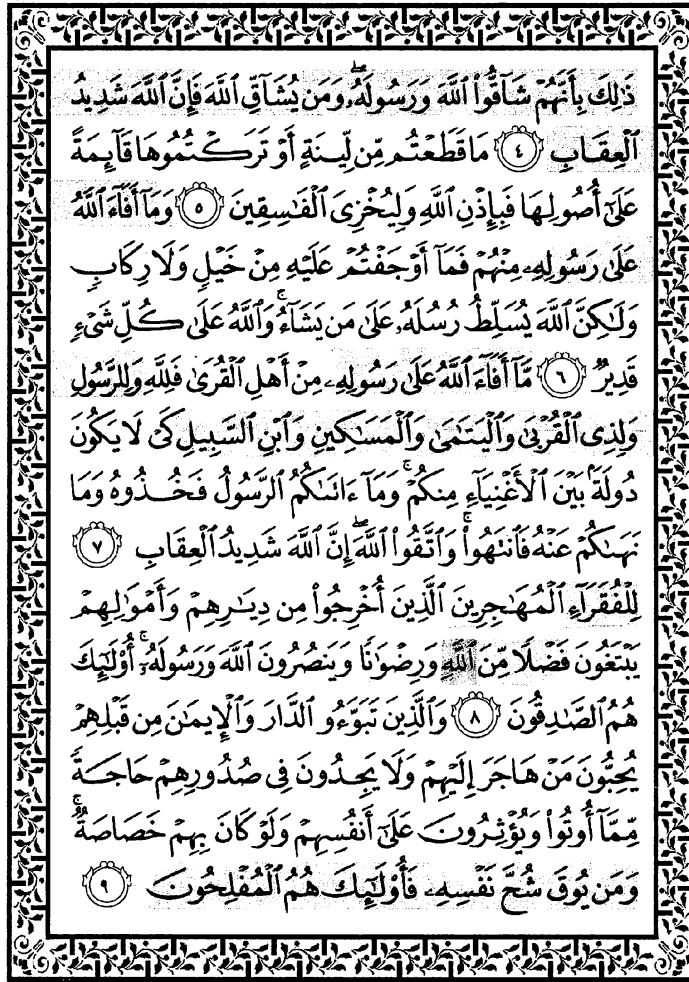 ذَٰلِكَ بِأَنَّهُمْ شَآقُّوا۟ ٱللَّهَ وَرَسُولَهُۥ ۖ وَمَن يُشَآقِّ ٱللَّهَ فَإِنَّ ٱللَّهَ شَدِيدُ
ٱلْعِقَابِ ٤ مَا قَطَعْتُم مِّن لِّينَةٍ أَوْ تَرَكْتُمُوهَا قَآئِمَةً
عَلَىٰٓ أُصُولِهَا فَبِإِذْنِ ٱللَّهِ وَلِيُخْزِىَ ٱلْفَـٰسِقِينَ ٥ وَمَآ أَفَآءَ ٱللَّهُ
عَلَىٰ رَسُولِهِۦ مِنْهُمْ فَمَآ أَوْجَفْتُمْ عَلَيْهِ مِنْ خَيْلٍ وَلَا رِكَابٍ
وَلَـٰكِنَّ ٱللَّهَ يُسَلِّطُ رُسُلَهُۥ عَلَىٰ مَن يَشَآءُ ۚ وَٱللَّهُ عَلَىٰ كُلِّ شَىْءٍ
قَدِيرٌ ٦ مَّآ أَفَآءَ ٱللَّهُ عَلَىٰ رَسُولِهِۦ مِنْ أَهْلِ ٱلْقُرَىٰ فَلِلَّهِ وَلِلرَّسُولِ
وَلِذِى ٱلْقُرْبَىٰ وَٱلْيَتَـٰمَىٰ وَٱلْمَسَـٰكِينِ وَٱبْنِ ٱلسَّبِيلِ كَىْ لَا يَكُونَ
دُولَةًۢ بَيْنَ ٱلْأَغْنِيَآءِ مِنكُمْ ۚ وَمَآ ءَاتَىٰكُمُ ٱلرَّسُولُ فَخُذُوهُ وَمَا
نَهَىٰكُمْ عَنْهُ فَٱنتَهُوا۟ ۚ وَٱتَّقُوا۟ ٱللَّهَ ۖ إِنَّ ٱللَّهَ شَدِيدُ ٱلْعِقَابِ ٧
لِلْفُقَرَآءِ ٱلْمُهَـٰجِرِينَ ٱلَّذِينَ أُخْرِجُوا۟ مِن دِيَـٰرِهِمْ وَأَمْوَٰلِهِمْ
يَبْتَغُونَ فَضْلًا مِّنَ ٱللَّهِ وَرِضْوَٰنًا وَيَنصُرُونَ ٱللَّهَ وَرَسُولَهُۥٓ ۚ أُو۟لَـٰٓئِكَ
هُمُ ٱلصَّـٰدِقُونَ ٨ وَٱلَّذِينَ تَبَوَّءُو ٱلدَّارَ وَٱلْإِيمَـٰنَ مِن قَبْلِهِمْ
يُحِبُّونَ مَنْ هَاجَرَ إِلَيْهِمْ وَلَا يَجِدُونَ فِى صُدُورِهِمْ حَاجَةً
مِّمَّآ أُوتُوا۟ وَيُؤْثِرُونَ عَلَىٰٓ أَنفُسِهِمْ وَلَوْ كَانَ بِهِمْ خَصَاصَةٌ ۚ
وَمَن يُوقَ شُحَّ نَفْسِهِۦ فَأُو۟لَـٰٓئِكَ هُمُ ٱلْمُفْلِحُونَ ٩